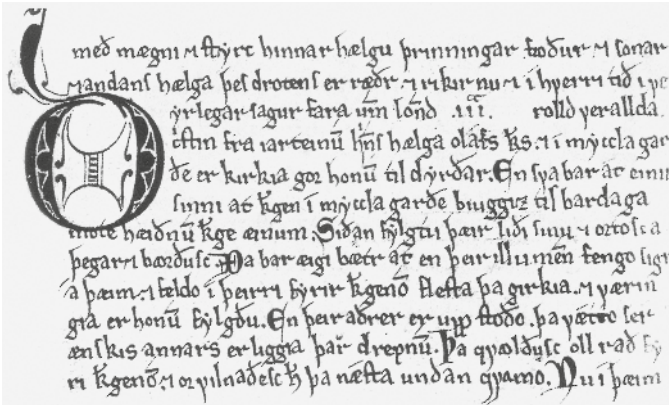 með mægni ⁊ ſtyrc hinnar hælgu þrinningar. foður ⁊ ſonar
⁊ andanſ hælga þeſ drotenſ er ræðr ⁊ rikir nu ⁊ i hverri tið i ve
Dyrlegar ſagur fara um̅ lond .iii. rolld verallda.
fra iarteinu̅ hn̅ſ hælga olafſ k̅s. ⁊ i myccla gar
ðe er kirkia gor honu̅ til dyrðar. En ſva bar at einu
ſinni at k̅gen i myccla garðe buiggiz til bardaga
imote hæiðnu̅ k̅ge æinum. Siðan fylgtu þæir liði ſinu ⁊ ortoſc a
þegar ⁊ bærðuſc. Þa bar æigi bætr at en þeir illu men̅ fengo ſigr
a þæim ⁊ feldo i þeirri fyrir k̅geno̅ fleſta þa girkia. ⁊ værin
gia er honu̅ fylgðu. En þeir aðrer er upp ſtoðo. þa vætto ſer
ænſkis annars er liggia þar drepnu̅. Þa qvælduſc oll rað fy
ri k̅geno̅. ⁊ orvilnaðeſc h̅ þa næſta undan qvamo. Nu i þæim